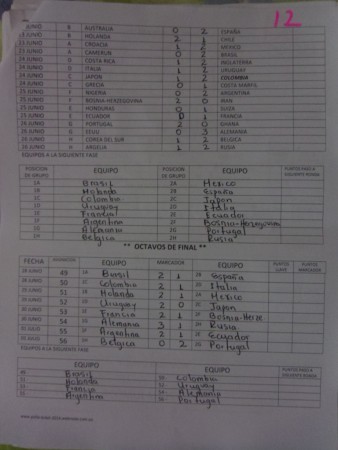 12
JUNIO B AUSTRALIA 0 2 ESPAÑA
JUNIO B HOLANDA 2 1 CHILE
JUNIO A CROACIA 1 2 MEXICO
JUNIO A CAMERUN 0 2 BRASIL
JUNIO D COSTA RICA 1 2 INGLATERRA
JUNIO D ITALIA 1 2 URUGUAY
JUNIO C JAPON 1 2 COLOMBIA
JUNIO C GRECIA 0 1 COSTA MARFIL
JUNIO F NIGERIA 0 2 ARGENTINA
JUNIO F BOSNIA-HERZEGOVINA 2 0 IRAN
JUNIO E HONDURAS 0 1 SUIZA
JUNIO E ECUADOR 0 1 FRANCIA
JUNIO G PORTUGAL 2 0 GHANA
JUNIO G EEUU 0 3 ALEMANIA
JUNIO H COREA DEL SUR 1 2 BELGICA
JUNIO H ARGELIA 1 2 RUSIA
EQUIPOS A LA SIGUIENTE FASE
POSICION DE GRUPO EQUIPO POSICION DE GRUPO EQUIPO PUNTOS PASO A SIGUIENTE RONDA
1A Brasil 2A Mexico
1B Holanda 2B España
1C Colombia 2C Japon
1D Uruguay 2D Italia
1E Francia 2E Ecuador
1F Argentina 2F Bosnia-Herzegovina
1G Alemania 2G Portugal
1H Belgica 2H Rusia
** OCTAVOS DE FINAL **
FECHA EQUIPO MARCADOR EQUIPO PUNTOS PUNTOS MARCADOR
28 JUNIO 49 1A Brasil 2 1 2B España
28 JUNIO 50 1C Colombia 2 1 2D Italia
29 JUNIO 51 1B Holanda 2 1 2A Mexico
29 JUNIO 52 1D Uruguay 2 0 2C Japon
30 JUNIO 53 1E Francia 2 1 2F Bosnia-Herze
30 JUNIO 54 1G Alemania 3 1 2H Rusia
01 JULIO 55 1F Argentina 2 1 2E Ecuador
01 JULIO 56 1H Belgica 0 2 2G Portugal
EQUIPOS A LA SIGUIENTE FASE
EQUIPO EQUIPO PUNTOS PASO A SIGUIENTE RONDA
49 Brasil 50 Colombia
51 Holanda 52 Uruguay
53 Francia 54 Alemania
55 Argentina 56 Portugal